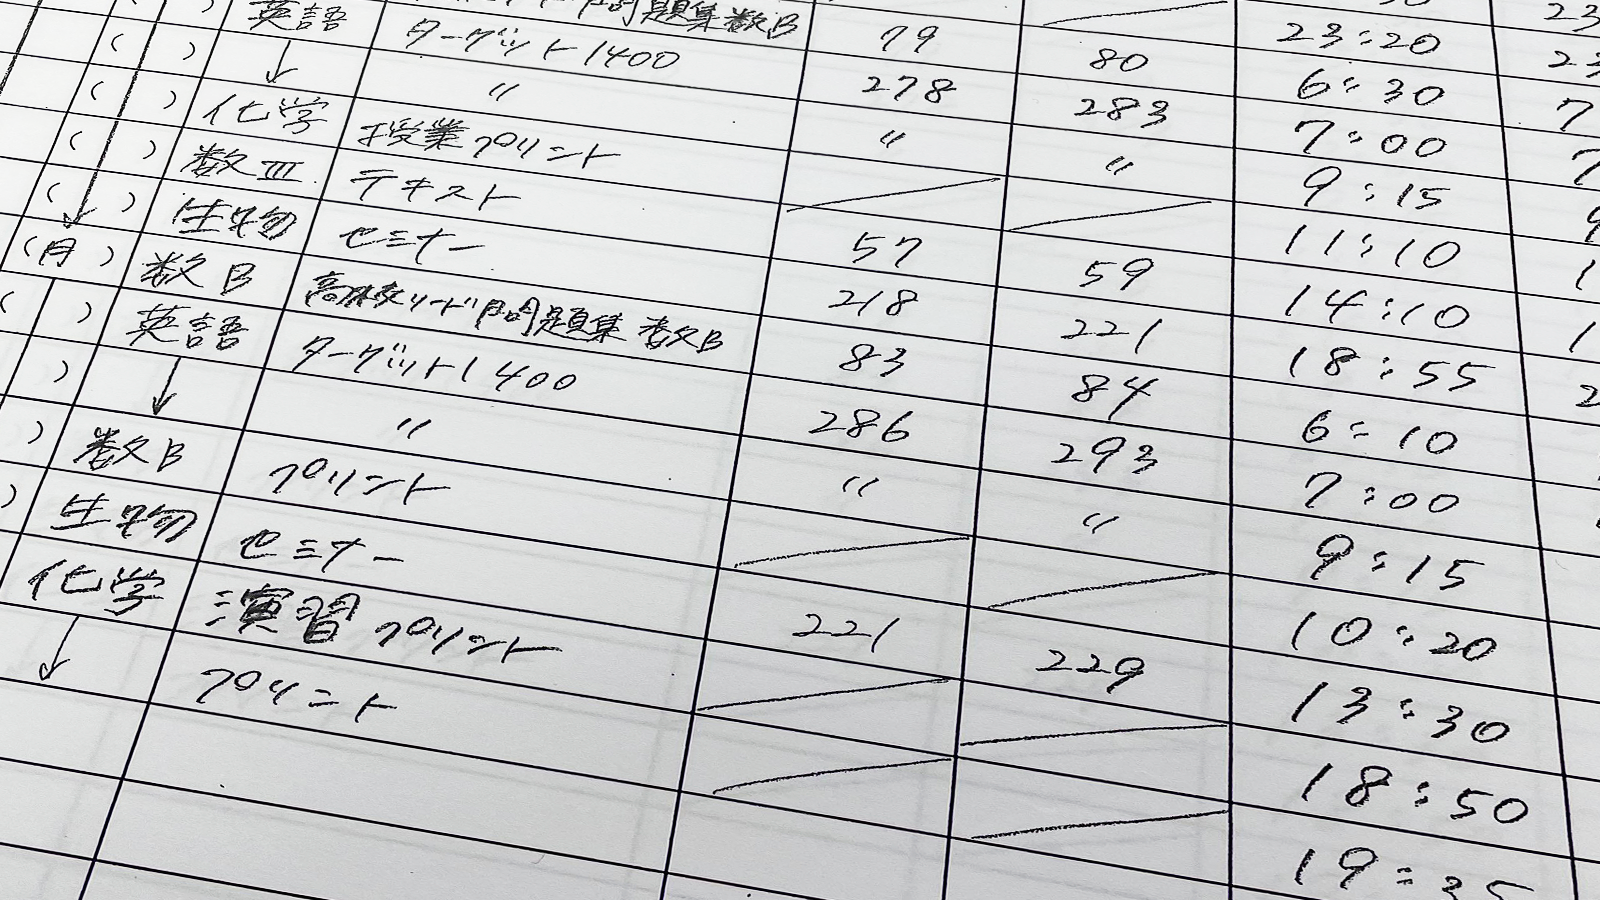 23:20
問題集数B 79 80 6:30
( ) 英語 ターゲット1400 278 283 7:00
( ) ↓ 〃 〃 〃 9:15
( ) 化学 授業プリント 11:10
( ) 数III テキスト 57 59 14:10
( ) 生物 セミナー 218 221 18:55
(月) 数B 高校リード問題集 数B 83 84 6:10
( ) 英語 ターゲット1400 286 293 7:00
) ↓ 〃 〃 〃 9:15
) 数B プリント 10:20
) 生物 セミナー 221 229 13:30
化学 演習プリント 18:50
↓ プリント 19:35